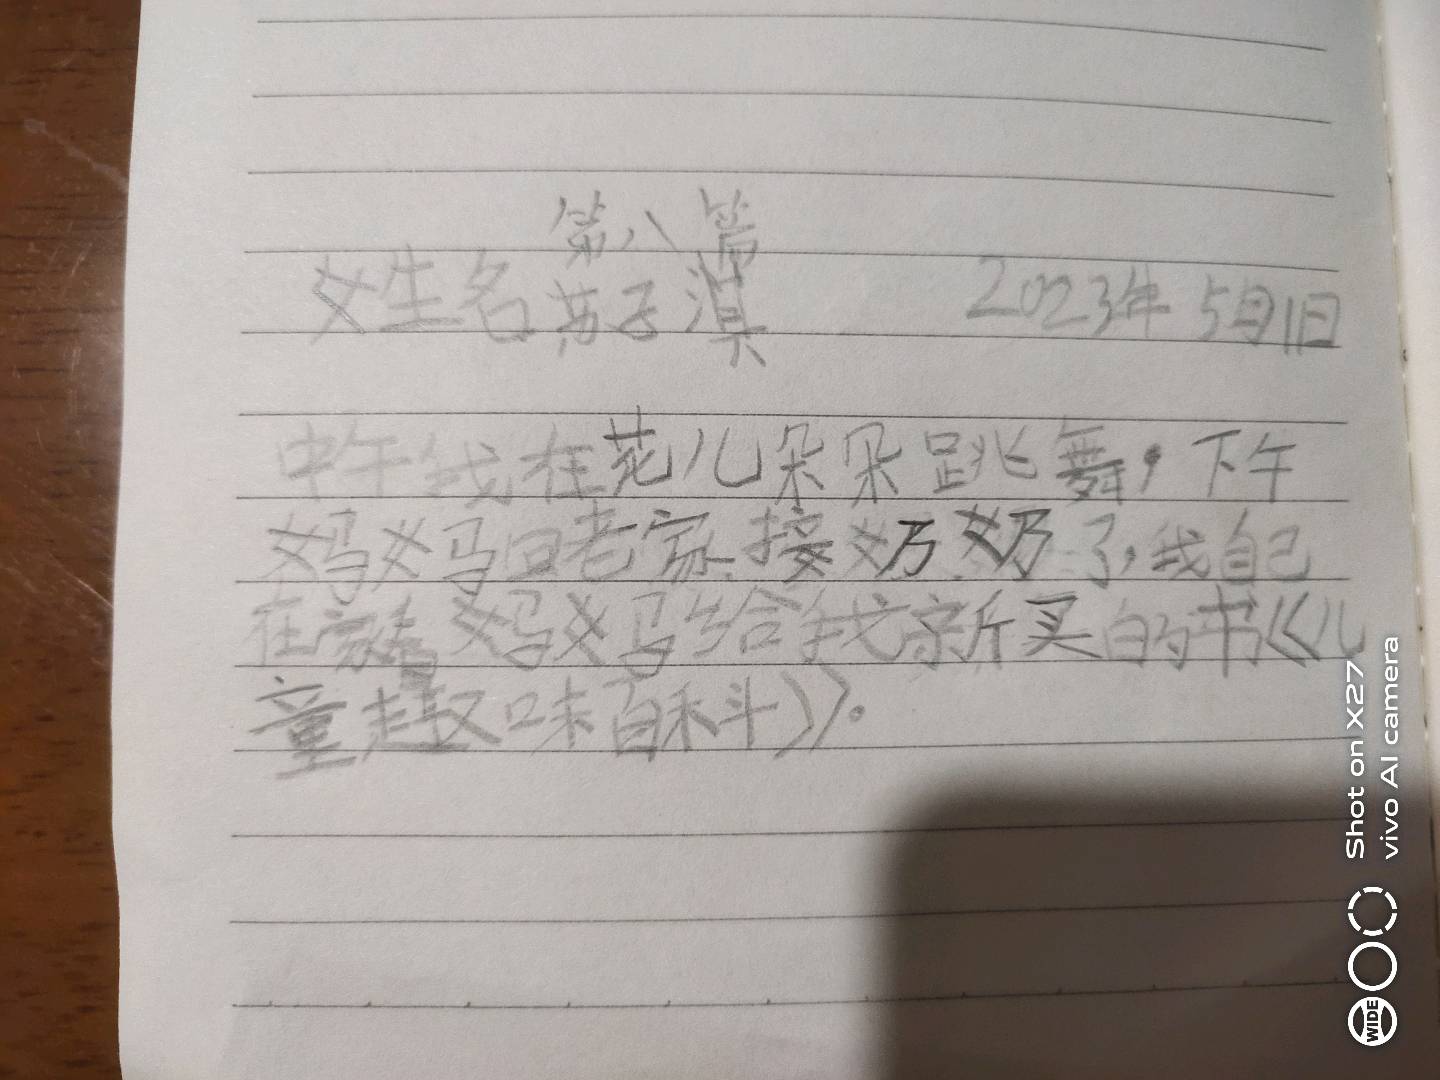 第八篇
姓名苏子淇 2023年5月1日
中午我在花儿朵朵跳舞，下午
妈妈回老家接奶奶了，我自己
在家看妈妈给我新买的书《儿
童趣味百科》。
Shot on X27
vivo AI camera
WIDE